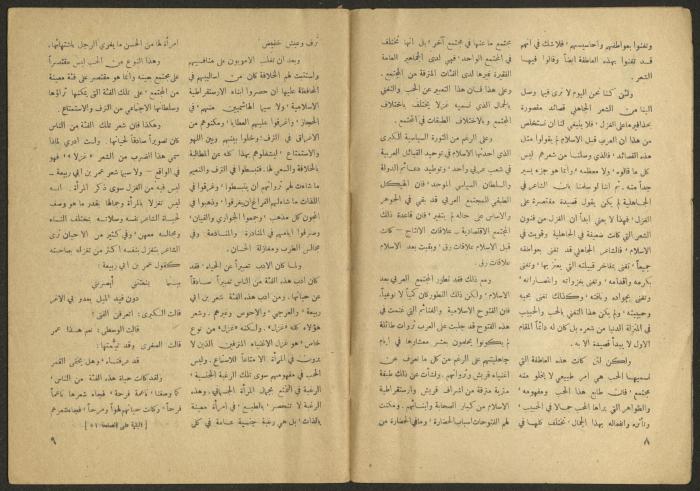 وتفنوا بعواطفهم وأحاسيسهم، فلا شك في انهم
قد تغنوا بهذه العاطفة أيضاً وقالوا فيها
الشعر.
ولئن كنا نحن اليوم لا نرى فيما وصل
الينا من الشعر الجاهلي قصائد مقصورة
بحذافيرها على الغزل، فلا ينبغي لنا ان نستخلص
من هذا ان العرب قبل الاسلام لم يقولوا مثل
هذه القصائد، فالذي وصلنا من شعرهم ليس
كل ما قالوه، ولا معظمه، وانما هو جزء يسير
جداً منه. ثم اننا لو سلمنا بان الشاعر في
الجاهلية لم يكن يقول قصيدة مقتصرة على
الغزل، فهذا لا يعني ابداً ان الغزل من فنون
الشعر التي كانت ضعيفة في الجاهلية وقويت في
الاسلام، فالشاعر الجاهلي قد تغنى بعواطفه
جميعاً، تغنى بمفاخر قبيلته التي يعتز بها، وتغنى
بكرمه واقدامه، وتغنى بغزواته وانتصاراته،
وتغنى بجواده وناقته، وكذلك تغنى بحبه
وحبيبته، ولم يكن هذا التغني بالحب والحبيب
في المنزلة الدنيا من شعره بل كان له دائماً المقام
الاول لا يبدأ قصيدة الا به.
ولكن لئن كانت هذه العاطفة التي
نسميها الحب هي امر طبيعي لا يخلو منه
مجتمع، فان طابع هذا الحب ومفهومه،
والظواهر التي يراها المحب جمالا في الحبيب،
وتأثره وانفعاله بهذا الجمال، تختلف كلها في
٨
مجتمع ما عنها في مجتمع آخر، بل انها تختلف
في المجتمع الواحد، فهي لدى الجماهير العامة
الفقيرة غيرها لدى الفئات المترفة من المجتمع.
وعلى هذا فان هذا التعبير عن الحب والتغني
بالجمال الذي نسميه غزلا يختلف باختلاف
المجتمع وباختلاف الطبقات في المجتمع.
وعلى الرغم من الثورة السياسية الكبرى
التي أحدثها الاسلام في توحيد القبائل العربية
في شعب عربي واحد، وتوطيد دعائم الدولة
والسلطان السياسي الموحد، فان الهيكل
الطبقي للمجتمع العربي قد بقي في الجوهر
والاساس على حاله لم يتغير، فان قاعدة ذلك
المجتمع الاقتصادية ــ علاقات الانتاج ــ كانت
قبل الاسلام علاقات رق، وبقيت بعد الاسلام
علاقات رق.
ومع ذلك فقد تطور المجتمع العربي بعد
الاسلام، ولكن ذلك التطور كان كمياً لا نوعياً،
فان الفتوحات الاسلامية والغنائم التي صاحبت
هذه الفتوح قد جلبت على العرب ثروات طائلة
لم يكونوا يحلمون بعشر معشارها في ايام
جاهليتهم على الرغم من كل ما نعرف عن
اغنياء قريش وثرواتهم. ونشأت عن ذلك طبقة
مثرية مترفة من اشراف قريش وارستقراطية
الاسلام من كبار الصحابة وابنائهم. ومكنت
لهم الفتوحات اسباب الحضارة، وما في الحضارة من
ترف وعيش خفيض.
وبعد ان تغلب الامويون على منافسيهم
واستتبت لهم الخلافة كان من أساليبهم في
المحافظة عليها ان حصروا ابناء الارستقراطية
الاسلامية، ولا سيما الهاشميين منهم، في
الحجاز، واغرقوا عليهم العطايا، ومكنوهم من
الاغراق في الترف، وخلوا بينهم وبين اللهو
والاستمتاع، ليشغلوهم بهذا كله عن المطالبة
بالخلافة والسعي لها، فتبسطوا في الترف والنعيم
ما شاءت لهم ثرواتهم ان يتبسطوا، وغرقوا في
اللذات ما شاء لهم الفراغ ان يغرقوا، وذهبوا في
المجون كل مذهب، وجمعوا الجواري والقيان،
وصرفوا ايامهم في المنادرة والمنادمة، وفي
مجالس الطرب ومغازلة الحسان.
ولما كان الادب تعبيراً عن الحياة، فقد
كان ادب هذه الفئة من الناس تعبيراً صادقاً
عن حياتها. ومن ادب هذه الفئة شعر بن ابي
ربيعة، والعرجي، والاحوص وغيرهم. وشعر
هؤلاء كله «غزل»، ولكنه «غزل» من نوع
خاص، هو غزل الاغنياء المترفين الذين لا
يرون في المرأة الا متاعاً للاستمتاع. وليس
الحب في مفهومهم سوى تلك الرغبة الجنسية،
الرغبة في التمتع بجمال المرأة الجسماني، وهذه
الرغبة لا تنحصر، بالطبع، في امرأة معينة
بالذات، بل هي رغبة جنسية عامة في كل
امرأة لها من الحسن ما يغري الرجل باشتهائها.
وهذا النوع من الحب ليس مقتصراً
على مجتمع بعينه وانما هو مقتصر على فئة معينة
من المجتمع، على تلك الفئة التي يمكنها ثراؤها
وسلطانها الاجتماعي من الترف والاستمتاع.
وهكذا فان شعر تلك الفئة من الناس
كان تصويراً صادقاً لحياتها. ولست ادري لماذا
سمي هذا الضرب من الشعر «غزلا»، فهو
في الواقع ــ ولا سيما شعر عمر بن ابي ربيعة ــ
ليس فيه من الغزل سوى ذكر المرأة. انه
ليس تغزلا بالمرأة وجمالها بقدر ما هو وصف
لحياة الشاعر نفسه وصلاته بمختلف النساء
ومجالسه معهن، وفي كثير من الاحيان نرى
الشاعر يتغزل بنفسه اكثر من تغزله بصاحبته
كقول عمر بن ابي ربيعة:
بينما ينعتنني أبصرنني
دون قيد الميل يعدو بي الاغر
قالت الكبرى: اتعرفن الفتى؟
قالت الوسطى: نعم هذا عمر
قالت الصغرى وقد تيمتها:
قد عرفناه، وهل يخفى القمر
ولقد كانت حياة هذه الفئة من الناس،
كما وصفنا، ناعمة فرحة، فجاء شعرها ناعماً
فرحاً، وكانت حياتهم لهواً ومرحاً، فجاء شعرهم
[البقية على الصفحة ٥١]
٩